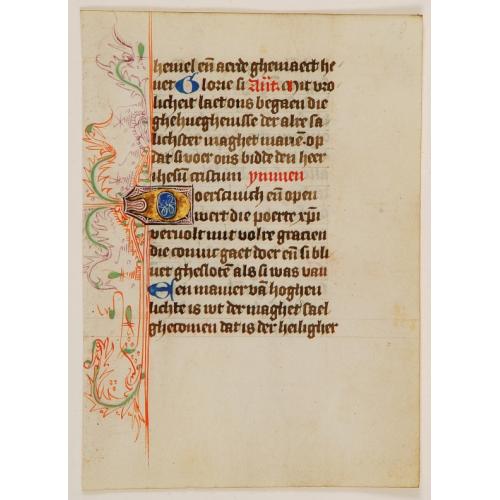 hemel en̄ aerde ghemaect he
uet Glorie si An̄t. Mit vro
licheit laet ons begaen die
ghehueghenisse der alre sa
lichster maghet marien̄. op
dat si voer ons bidde den heer
ihesū cristum ymmen
en̄ open
wert die poerte xp̄i
veruolt mit volre gracien
die coninc gaet doer en̄ si bli
uet ghesloten̄ als si was van
Een manier van̄ hoghen
lichte is wt der maghet sael
ghecomen dat is der heiligher